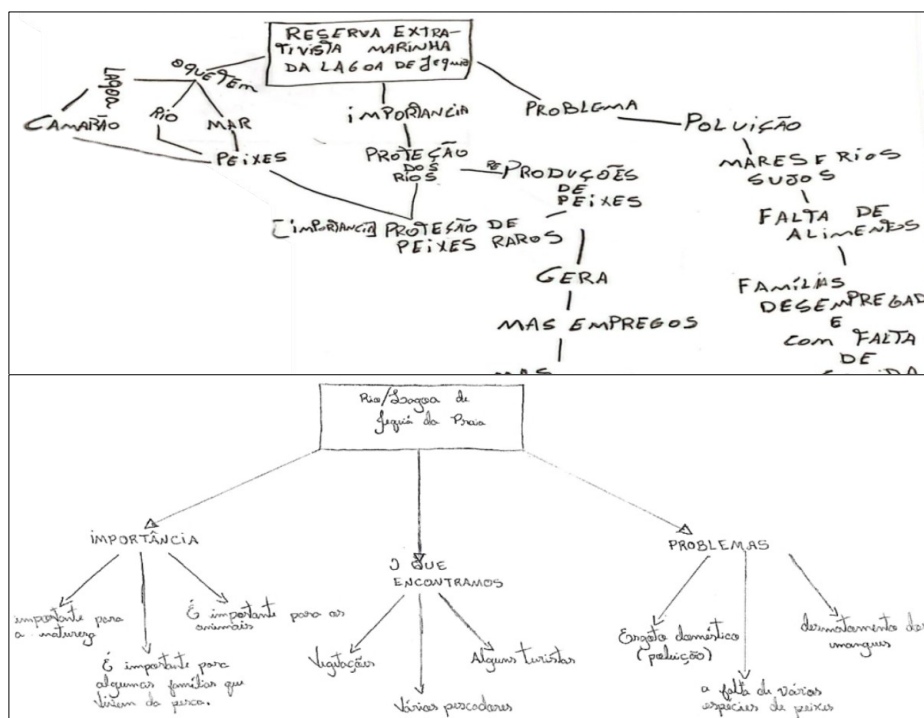 RESERVA EXTRA-
TIVISTA MARINHA
DA LAGOA DE Jequiá
O QUE TEM
LAGOA
CAMARÃO
RIO
MAR
PEIXES
IMPORTANCIA
PROTEÇÃO
DOS
RIOS
REPRODUÇÕES
DE
PEIXES
[IMPORTANCIA] PROTEÇÃO DE
PEIXES RAROS
GERA
MAS EMPREGOS
MAS
PROBLEMA
POLUIÇÃO
MARES E RIOS
SUJOS
FALTA DE
ALIMENTOS
FAMÍLIAS
DESEMPREGAD
E
COM FALTA
DE
Rio/Lagoa de
Jequiá da Praia
IMPORTÂNCIA
importante para
a natureza
É importante para
algumas famílias que
vivem da pesca.
É importante para os
animais
O QUE
ENCONTRAMOS
Vegitações
Vários pescadores
Alguns turistas
PROBLEMAS
Esgoto doméstico
(poluição)
a falta de vários
espécies de peixes
desmatamento dos
mangues